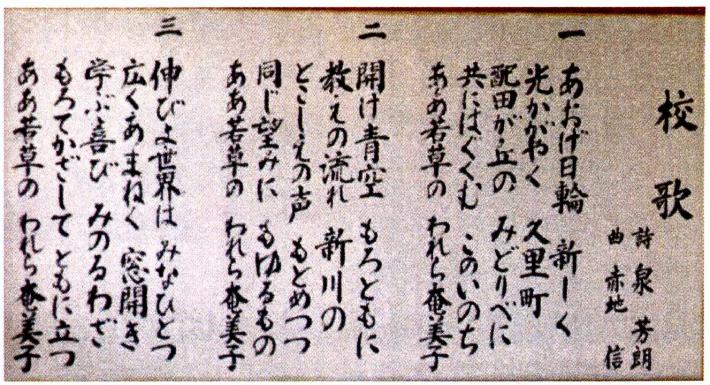 校歌
詩 泉 芳朗
曲 赤地 信
一 あおげ日輪 新しく
光かがやく 久里町
配田が丘の みどりべに
共にはぐくむ このいのち
ああ若草の われら奄美子
二 開け青空 もろともに
教えの流れ 新川の
とこしえの声 もとめつつ
同じ望みに もゆるもの
ああ若草の われら奄美子
三 伸びよ世界は みなひとつ
広くあまねく 窓開き
学ぶ喜び みのるわざ
もろてかざして ともに立つ
ああ若草の われら奄美子